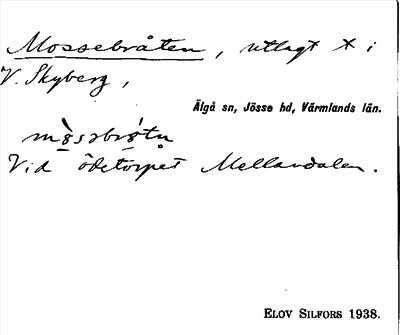 Mossebråten, utlagt × i
V. Skyberg,
Älgå sn, Jösse hd, Värmlands län.
Vid ödetorpet Mellandalen.
Elov Silfors 1938.